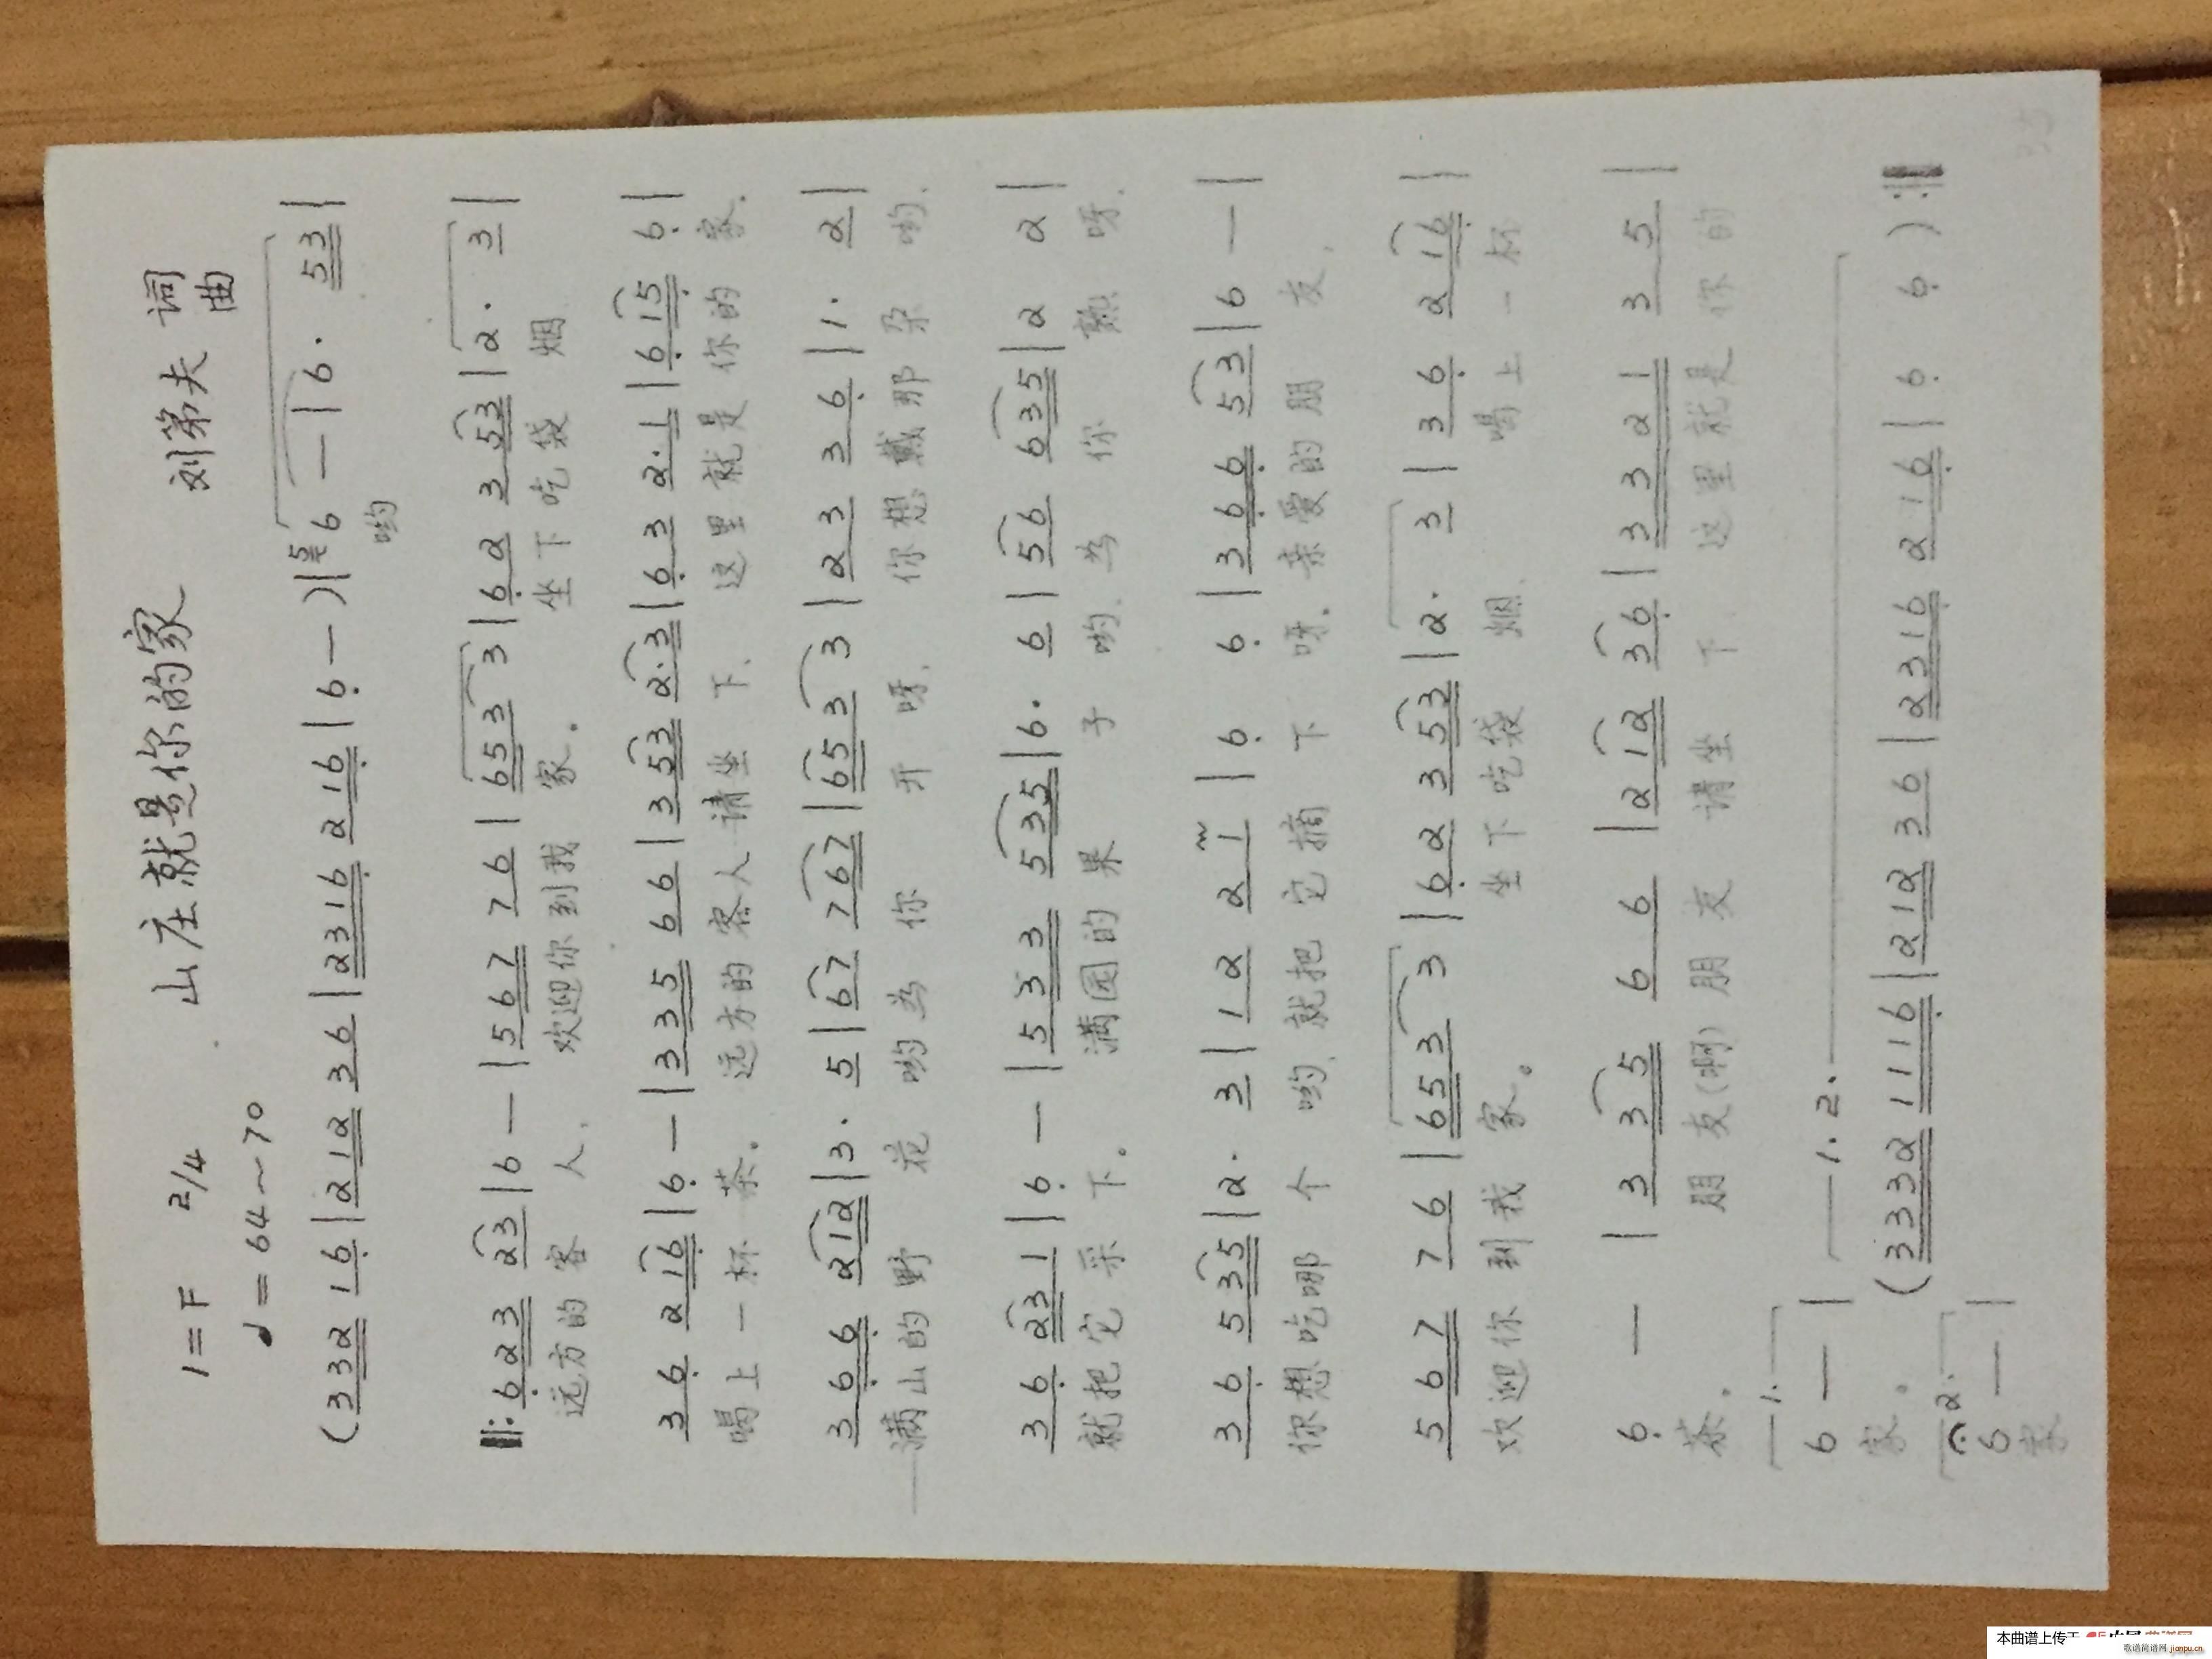 山庄就是你的家
1=F 2/4 刘第夫 词曲
♩=64~70
(332 16 | 212 36 | 2316 216 | 6 — ) | 56 6 — | 6· 53 |
哟
‖: 6 2 3 23 | 6 — | 567 76 | 653 3 | 62 353 | 2· 3 |
远方的客人, 欢迎你到我家。 坐下吃袋烟
36 216 | 6 — | 335 66 | 353 2·3 | 63 2·1 | 615 6 |
喝上一杯茶。 远方的客人请坐下, 这里就是你的家.
366 212 | 3· 5 | 67 767 | 653 3 | 23 36 | 1· 2 |
满山的野花哟为你开呀, 你想戴那朵哟.
36 231 | 6 — | 533 535 | 6· 6 | 56 635 | 2 2 |
就把它采下。 满园的果子哟, 为你熟呀.
36 535 | 2· 3 | 12 21 | 6 6 | 366 53 | 6 — |
你想吃哪个哟, 就把它摘下呀. 亲爱的朋友,
567 76 | 653 3 | 62 353 | 2· 3 | 36 216 |
欢迎你到我家。 坐下吃袋烟, 喝上一杯
6 — | 3 35 66 | 212 36 | 3321 35 |
茶。 朋友(啊)朋友请坐下 这里就是你的
1. 1.2.
6 — | (3332 1116 | 212 36 | 2316 216 | 6 6 ) :‖
家。
2.
6 — |
家
本曲谱上传于
歌谱简谱网 jianpu.cn